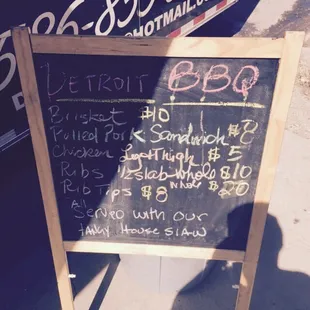 586-85
@HOTMAIL.C
DETROIT BBQ
Brisket $10
Pulled Pork Sandwich $8
Chicken Leg+Thigh $5
Ribs 1/2 slab whole $10
whole $20
Rib Tips $8
All
Served with our
House Slaw